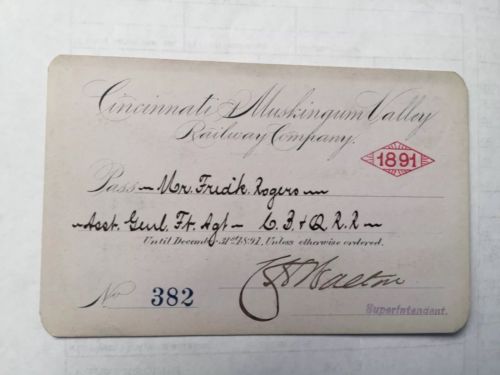 Cincinnati & Muskingum Valley
Railway Company.
1891
Pass Mr. Fredk. Rogers
Asst. Genl. Ft. Agt — C. B. & Q. R. R.
Until Decemb 31st 1891, Unless otherwise ordered.
No 382
Walton
Superintendent.